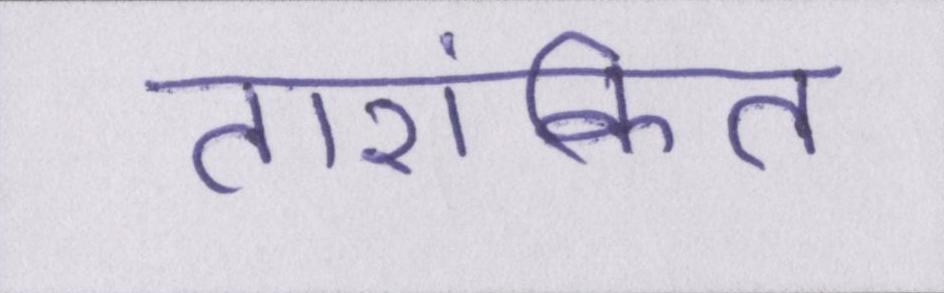 तारांकित